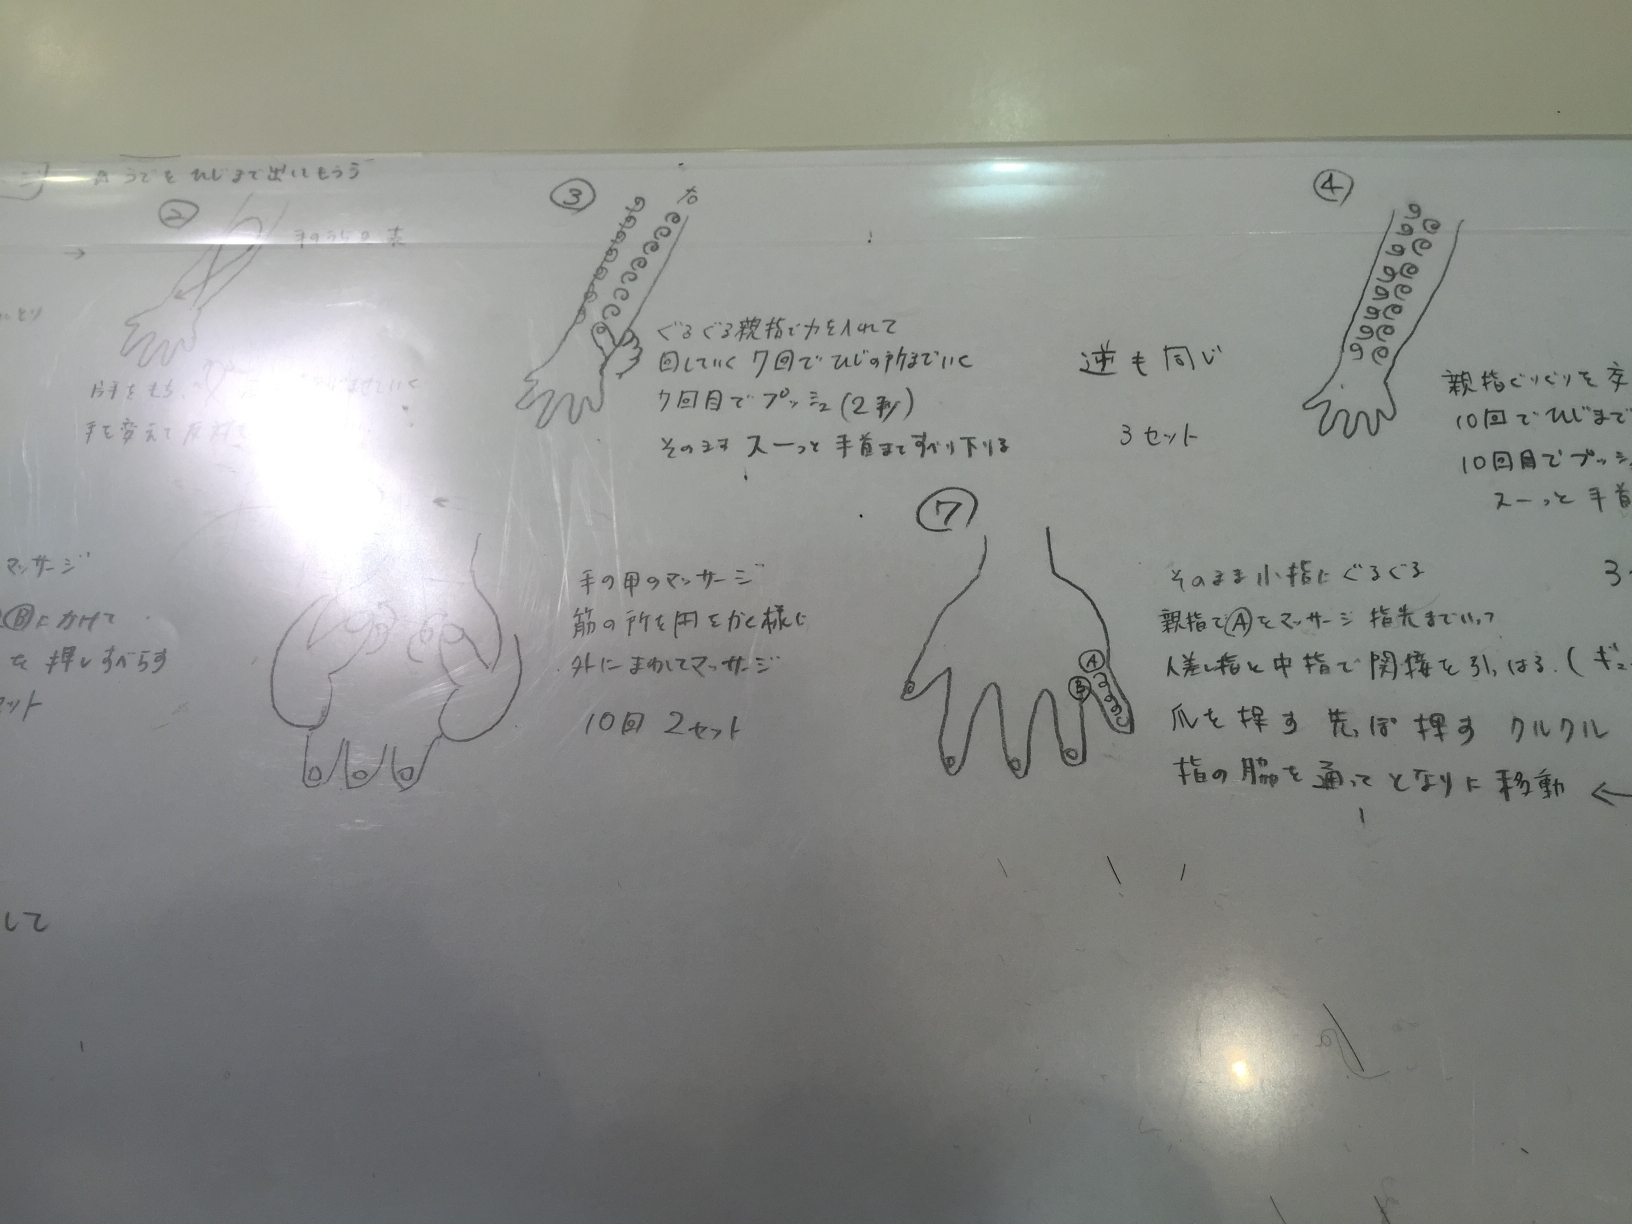 うでを ひじまで出してもらう
②
③
右
ぐるぐる親指で力を入れて
回していく 7回でひじの所までいく
7回目でプッシュ(2秒)
そのまま スーっと 手首まですべり下りる
逆も同じ
3セット
④
親指ぐりぐりを交
10回でひじまで
10回目でプッシュ
スーっと 手首
手を変えて
マッサージ
Ⓑにかけて
を 押しすべらす
セット
手の甲のマッサージ
筋の所を円をかく様に
外にまわしてマッサージ
10回 2セット
⑦
Ⓐ
Ⓑ
そのまま小指にぐるぐる
親指でⒶをマッサージ 指先までいって
人差し指と中指で関接を引っぱる.(ギュ
爪を押す 先っぽ押す クルクル
指の脇を通って となりに移動 ←
3
して